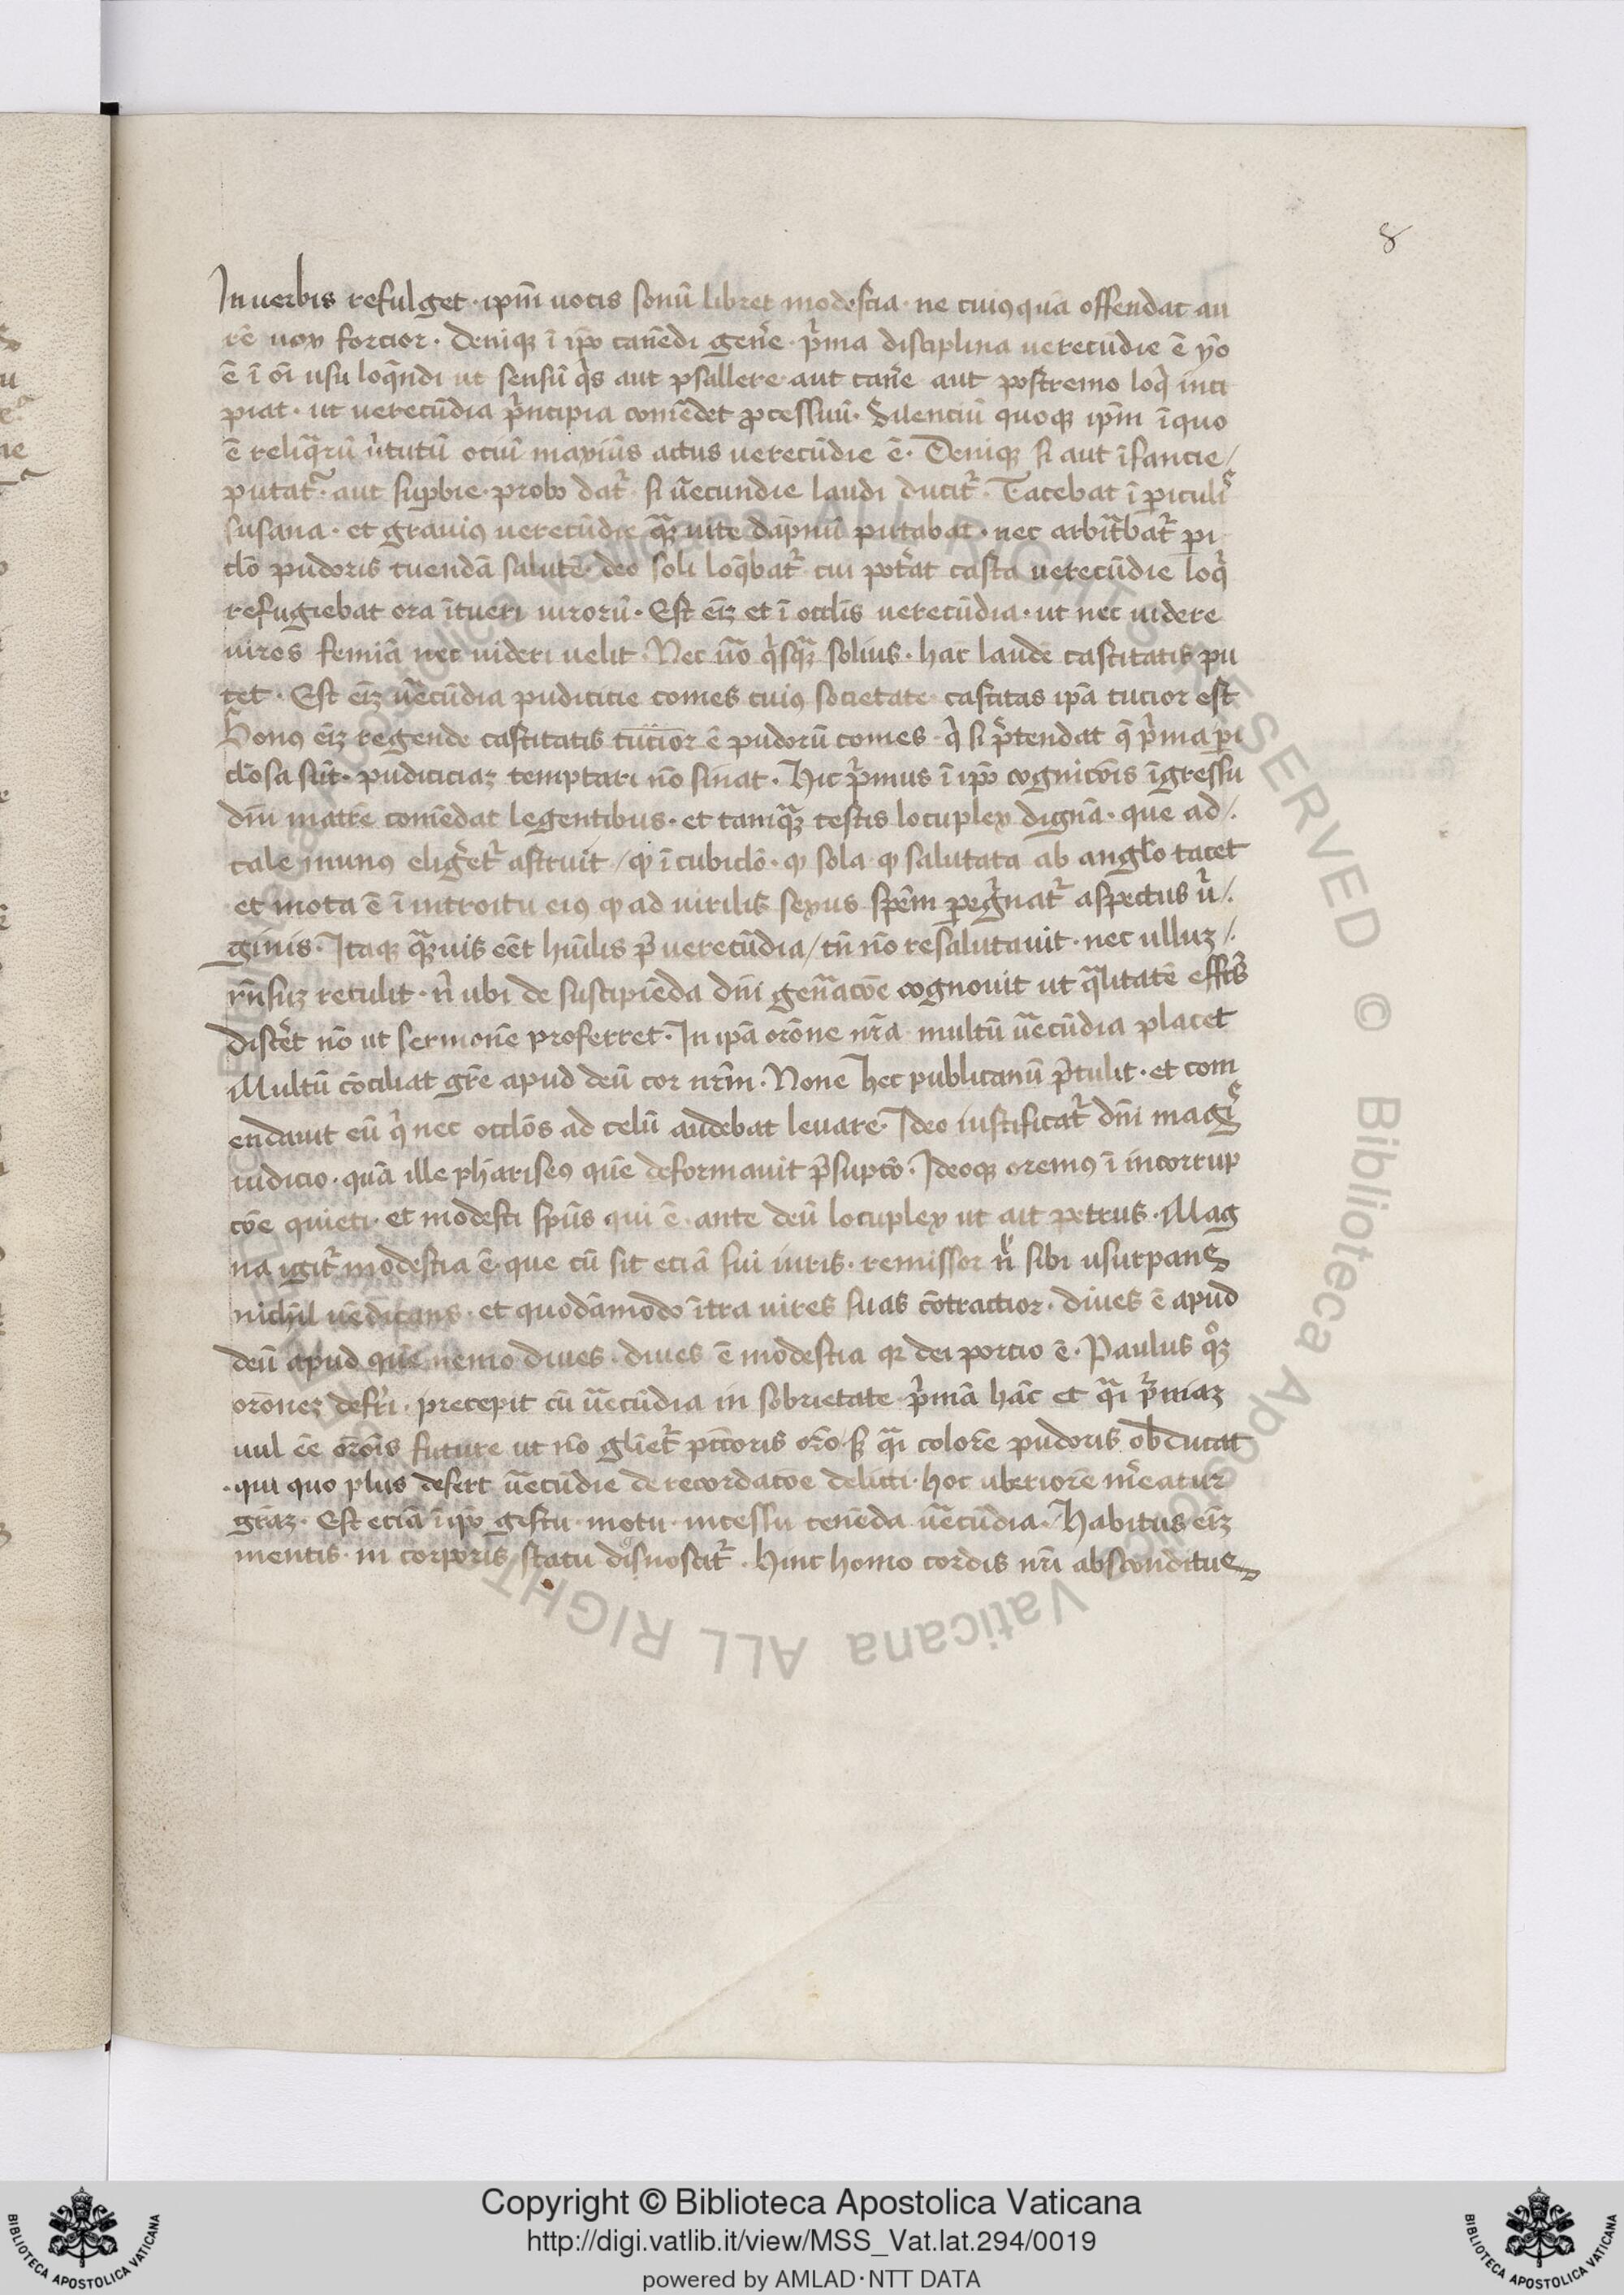 8
In uerbis refulget · ip̄m uocis sonū libret modestia · ne cuiusquā offendat au
rē uox forcior · Denique ī ip̄o canēdi gen̄e · p̄ma disciplina uerecūdie ē ȳo
ē ī oī usu loq̄ndi ut sensū q̄s aut psallere aut can̄e aut postremo loq̄ inci
piat · ut uerecūdia p̄ncipia comēdet ꝓcessuū · Silenciū quoque ip̄m ī quo
ē reliq̄rū ūtutū ociū maxiūs actus uerecūdie ē · Deniqꝫ si aut īfancie /
putat᷑ · aut suꝑbie · probro dat᷑ · si ūecundie laudi ducit᷑ · Tacebat ī ꝑiculis
susana · et grauius uerecūdie qꝫ uite dāpnū putabat · nec arbit̄bat᷑ ꝑi
clō pudoris tuendā salutē · deo soli loq̄bat᷑ cui pot̄at casta uerecūdie loq̄
refugiebat ora ītueri uirorū · Est eīꝫ et ī oclīs uerecūdia · ut nec uidere
uiros femiā nec uideri uelit · Nec ūo q̄sqꝫ solius · hāc laudē castitatis pu
tet · Est eīꝫ ūecūdia pudicicie comes cuius societate castitas ip̄a tucior est
Bonus eīꝫ regende castitatis tucior ē pudorū comes · q̄ si p̄tendat q̄ p̄ma ꝑi
clōsa sūt · pudiciciaꝫ temptari nō sinat · Hic p̄mus ī ip̄o cognicōis īgressu
dn̄i matrē comēdat legentibus · et tamqꝫ testis locuplex dignā · que ad /·
tale munus eliḡet᷑ astruit / ꝙ ī cubiclō · ꝙ sola ꝙ salutata ab angl̄o tacet
et mota ē ī introitu eius ꝙ ad uirilis sexus sp̄em ꝑeḡnat᷑ aspectus ū /·
ginis · Itaqꝫ qꝫuis eēt hūilis p̄ uerecūdia / tn̄ nō resalutauit · nec ulluꝫ /·
rn̄suꝫ retulit · n̄ ubi de suscipiēda dn̄i gen̄acōe cognouit ut q̄litatē effc̄s
disc̄et nō ut sermonē proferret · In ip̄a orōne nr̄a multū ūecūdia placet
Multū cōciliat gr̄e apud deū cor nr̄m · Nonē hec publicanū p̄tulit · et com
endauit eū q̄ nec oclōs ad celū audebat leuare · Ideo iustificat᷑ dn̄i magis
iudicio · quā ille phariseus quē deformauit p̄supcō · Ideoqꝫ oremus ī incorrup
cōe quieti · et modesti sp̄us qui ē · ante deū locuplex ut ait petrus · Mag
na igit᷑ modestia ē · que cū sit eciā sui iuris · remissor n̄ sibi usurpans
nichil uēdicans · et quodāmodo ītra uires suas cōtractior · diues ē apud
deū apud quē nemo diues · diues ē modestia qꝛ dei porcio ē · Paulus qꝫ
orōneꝫ defr̄i · precepit cū ūecūdia in sobrietate p̄mā hāc et q̄i p̄uiaꝫ
uul ēe orōis future ut nō gl̄iet᷑ pc̄coris orō sꝫ q̄i colorē pudoris obducat
· qui quo plus defert ūecūdie de recordacōe delicti · hoc uberiorē m̄eatur
gr̄aꝫ · Est eciā ī ip̄o gestu · motu · incessu tenēda ūecūdia · Habitus eīꝫ
mentis · in corporis statu disnoscit᷑ · Hinc homo cordis nr̄i absconditus
Copyright © Biblioteca Apostolica Vaticana
http://digi.vatlib.it/view/MSS_Vat.lat.294/0019
powered by AMLAD·NTT DATA
BIBLIOTECA APOSTOLICA VATICANA
BIBLIOTECA APOSTOLICA VATICANA